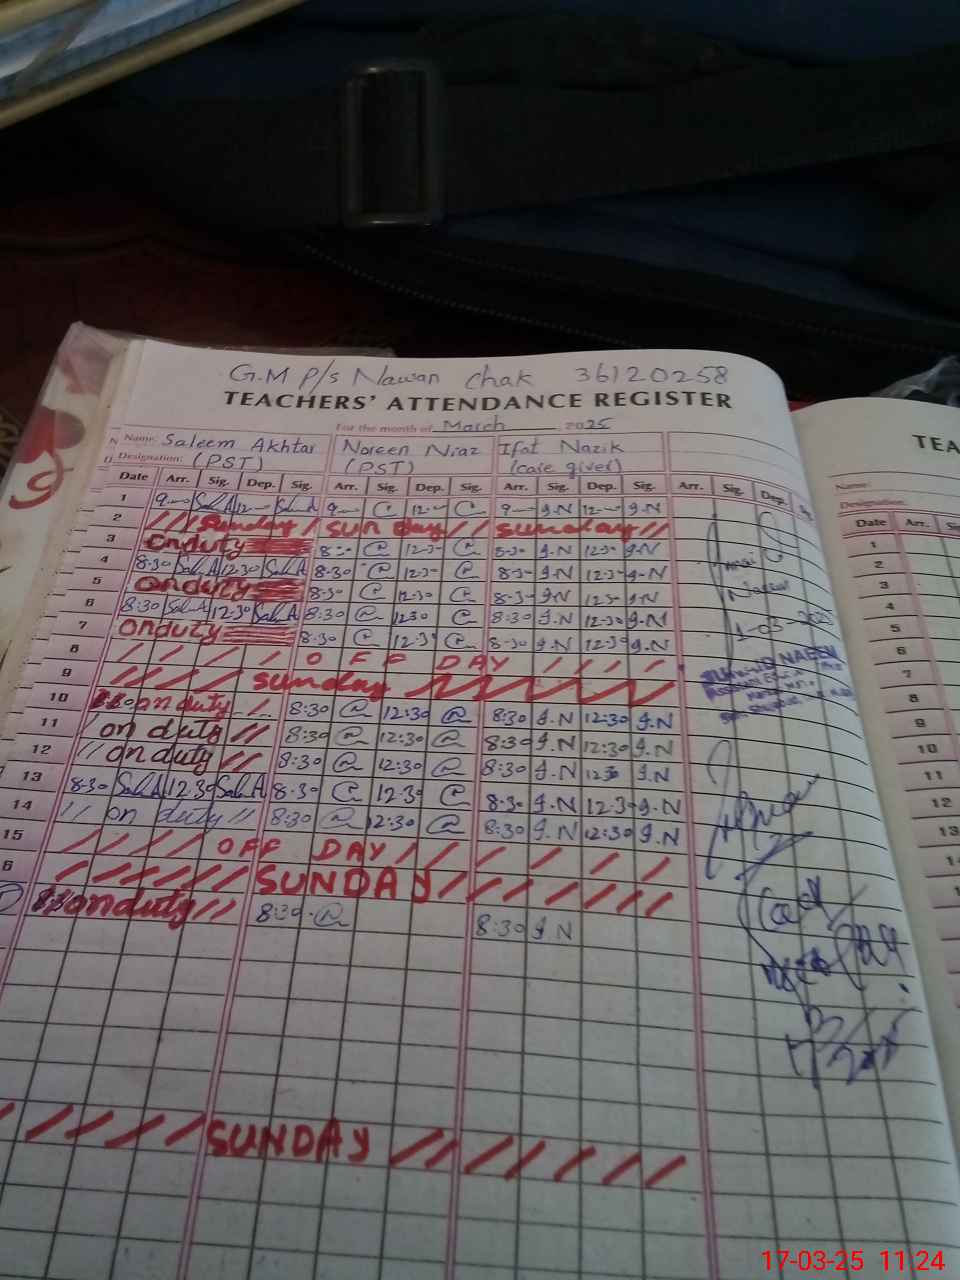 G.M P/s Nawan Chak 36120258
TEACHERS' ATTENDANCE REGISTER
For the month of March, 2025
Name: Saleem Akhtar Noreen Niaz Ifat Nazik
Designation: (PST) (PST) (care giver)
Date Arr. Sig. Dep. Sig. Arr. Sig. Dep. Sig. Arr. Sig. Dep. Sig. Arr. Sig. Dep. Sig.
1 9 Sal.A 12 Sal.A 9 C 12 C 9 I.N 12 I.N
2 /// Sunday / Sunday // Sunday //
3 onduty 8:30 C 12:30 C 8:30 I.N 12:30 I.N
4 8:30 Sal.A 12:30 Sal.A 8:30 C 12:30 C 8:30 I.N 12:30 I.N
5 onduty 8:30 C 12:30 C 8:30 I.N 12:30 I.N
6 8:30 Sal.A 12:30 Sal.A 8:30 C 12:30 C 8:30 I.N 12:30 I.N
7 onduty 8:30 C 12:30 C 8:30 I.N 12:30 I.N
8 / / / / / OFF DAY / / / /
9 / / / / Sunday
10 on duty 8:30 C 12:30 C 8:30 I.N 12:30 I.N
11 on duty // 8:30 C 12:30 C 8:30 I.N 12:30 I.N
12 // on duty // 8:30 C 12:30 C 8:30 I.N 12:30 I.N
13 8:30 Sal.A 12:30 Sal.A 8:30 C 12:30 C 8:30 I.N 12:30 I.N
14 // on duty // 8:30 C 12:30 C 8:30 I.N 12:30 I.N
15 / / / / / OFF DAY / / / / / / /
6 / / / / / / SUNDAY / / / / / / /
onduty // 8:30 C 8:30 I.N
/ / / / / SUNDAY / / / / / / /
TEA
Name:
Designation:
Date Arr. Sig
1
2
3
4
5
6
7
8
9
10
11
12
13
14
17-03-25 11:24